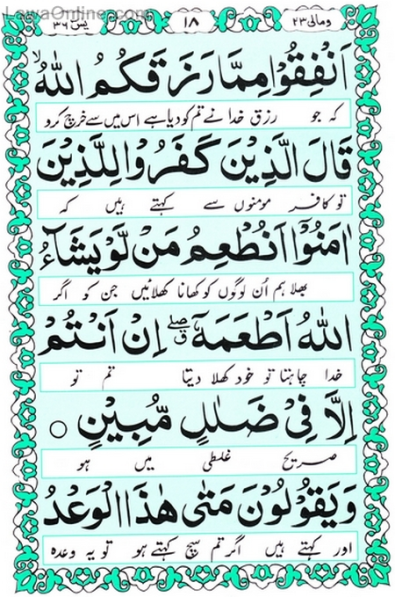 LawaOnline.com
ومالی ۲۳
۱۸
یٰسٓ ۳۶
اَنْفِقُوْا مِمَّا رَزَقَكُمُ اللّٰهُ ۙ
کہ جو رزق خدا نے تم کو دیا ہے اس میں سے خرچ کرو
قَالَ الَّذِيْنَ كَفَرُوْا لِلَّذِيْنَ
تو کافر مومنوں سے کہتے ہیں کہ
اٰمَنُوْٓا اَنُطْعِمُ مَنْ لَّوْ يَشَآءُ
بھلا ہم اُن لوگوں کو کھانا کھلائیں جن کو اگر
اللّٰهُ اَطْعَمَهٗٓ ۖ ق اِنْ اَنْتُمْ
خدا چاہتا تو خود کھلا دیتا تم تو
اِلَّا فِيْ ضَلٰلٍ مُّبِيْنٍ ○
صریح غلطی میں ہو
وَيَقُوْلُوْنَ مَتٰى هٰذَا الْوَعْدُ
اور کہتے ہیں اگر تم سچ کہتے ہو تو یہ وعدہ